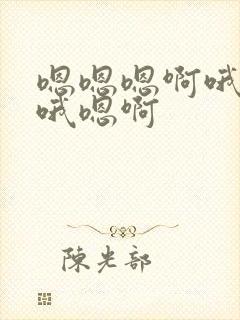 嗯嗯嗯啊哦
哦嗯啊
陳光部